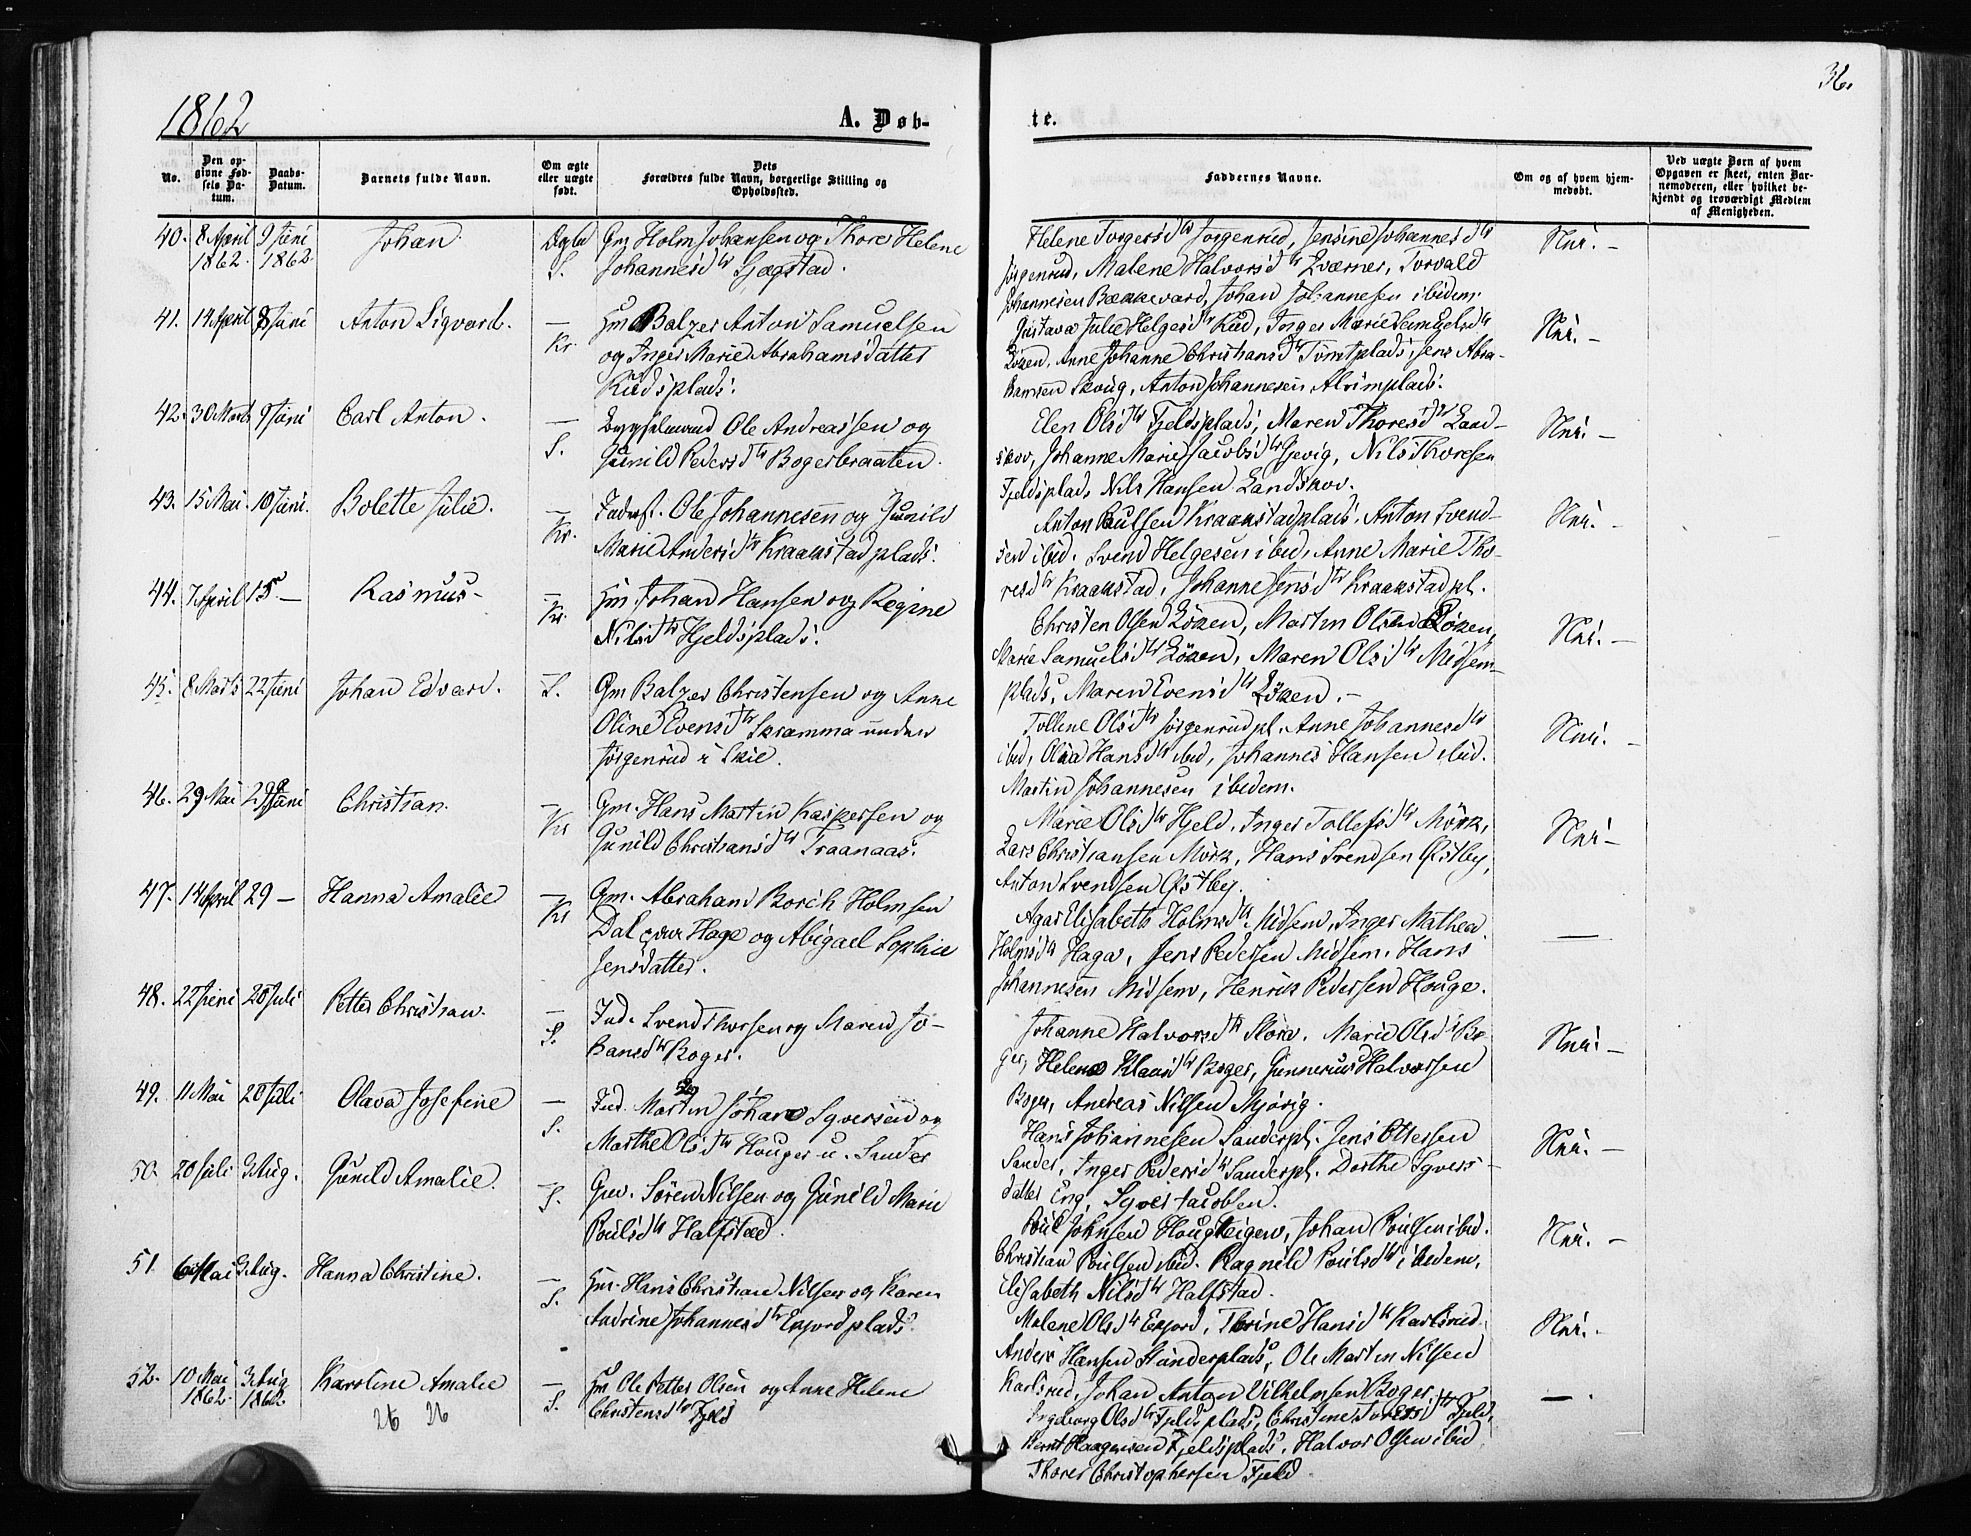 1862
A. Døb-
No.
Den op-
givne Fød-
sels Da-
tum.
Daabs-
Datum.
Barnets fulde Navn.
Om ægte
eller uægte
født.
Dets
Forældres fulde Navn, borgerlige Stilling og
Opholdssted.
40. 8 April 9 Juni Johan Ægte Gm Holm Johansen og Thore Helene
1862. 1862. S. Johannesd tr
41. 14 April 8 Juni Anton Sigvard. — Hm Balzer Anton Samuelsen
Kr. og Inger Marie Abrahamsdatter
Rudsplads.
42. 30 Marts 9 Juni Carl Anton. — Ole Andreassen og
S. Gunild Pedersd tr Bogerbraaten.
43. 15 Mai. 10 Juni. Bolette Julie. — Inderst. Ole Johannesen og Gunild
Kr. Marie Andersd tr Kraakstadplads.
44. 7 April 15 — Rasmus — Hm Johan Hansen og Regine
Kr. Nilsd tr Hjeldsplads.
45. 8 Marts 22 Juni Johan Edvard. S. Gm Balzer Christensen og Anne
Oline Evensd tr Skramma under
Jørgenrud i Skie.
46. 29 Mai 29 Juni Christian. — Gm. Hans Martin Kaspersen og
Kr Gunild Christiansd tr Traanaas.
47. 14 April 29 — Hanna Amalie — Gm. Abraham Borch Holmsen
Kr Dal Hage og Abigael Sophie
Jensdatter.
48. 22 Juni 20 Juli Petter Christian. — Ind. Svend Thorsen og Maren Jo-
S. hansd tr Boger.
49. 11 Mai 20 Juli Olava Josefine — Ind. Martin Johan Syversen og
S. Marthe Olsd tr Houger u. Sander
50. 20 Juli 3 Aug. Gunild Amalie. — Søren Nilsen og Gunild Marie
S. Poulsd tr Halfstad.
51. 6 Mai 3 Aug. Hanna Christine. — Hm. Hans Christian Nilsen og Karen
S. Andrine Johannesd tr Exjordplads.
52. 10 Mai 3 Aug Karoline Amalie — Hm Ole Petter Olsen og Anne Helene
1862. 1862. S. Christensd tr Fjeld
26 26
36.
te.
Faddernes Navne.
Om og af hvem hjem-
medøbt.
Ved uægte Børn af hvem
Opgaven er skeet, enten Bar-
nemoderen, eller hvilket be-
kjendt og troværdigt Medlem
af Menigheden.
Helene Torgersd tr Jørgenrud, Jensine Johannesd tr
Jørgenrud, Malene Halvorsd tr Kværner, Torvald
Johannesen Bakkevard, Johan Johannesen ibidem.
Gustava Julie Helgesd tr Rud, Inger Marie Samuelsd tr
Løken, Anne Johanne Christiansd tr Tomtplads, Jens Abra-
hamsen Skoug, Anton Johannesen Alrimplads.
Elen Olsd tr Fjeldsplads, Maren Thoresd tr Land-
skov, Johanne Marie Jacobsd tr Gjevig, Nils Thoresen
Fjeldsplads Nils Hansen Landskov.
Anton Poulsen Kraakstadplads. Anton Svend-
sen ibid. Svend Helgesen ibid, Anne Marie Tho-
resd tr Kraakstad, Johanne Jensd tr Kraakstadpl.
Christen Olsen Løken, Martin Olsen Løken,
Marie Samuelsd tr Løken, Maren Olsd tr Midsem-
plads, Maren Evensd tr Løken. —
Tollene Olsd tr Jørgenrudpl, Anne Johannesd tr
ibid, Olea Hansd tr ibid, Johannes Hansen ibid.
Martin Johannesen ibidem.
Marie Olsd tr Hjeld. Inger Tollefsd tr Mørk,
Lars Christiansen Mørk, Hans Svendsen Østby,
Anton Svendsen Østby.
Agas Elisabeth Holmsd tr Midsem, Inger Mathea
Holmsd tr Haga, Jens Pedersen Midsem. Hans
Johannesen Midsem, Henrik Pedersen Houge.
Johanne Halvorsd tr Skore. Marie Olsd tr Bo-
ger, Helene Klausd tr Boger, Gunnerius Halvorsen
Boger, Andreas Nilsen Mjørig.
Hans Johannesen Sanderpl. Jens Ottersen
Sander, Inger Pedersd tr Sanderpl. Dorthe Syvers-
datter Eng, Syver Jacobsen.
Poul Johnsen Hougteigen, Johan Poulsen ibid.
Christian Poulsen ibid. Ragnild Poulsd tr ibidem,
Elisabeth Nilsd tr Halfstad.
Malene Olsd tr Exjord, Thrine Hansd tr Karlsrud.
Anders Hansen Sanderplads, Ole Martin Nilsen
Karlsrud, Johan Anton Vilhelmsen Boger.
Ingeborg Olsd tr Fjeldsplads, Christine Toresd tr Fjeld,
Bernt Haagensen Fjeldsplads, Halvor Olsen ibid
Thorer Christophersen Fjeld.